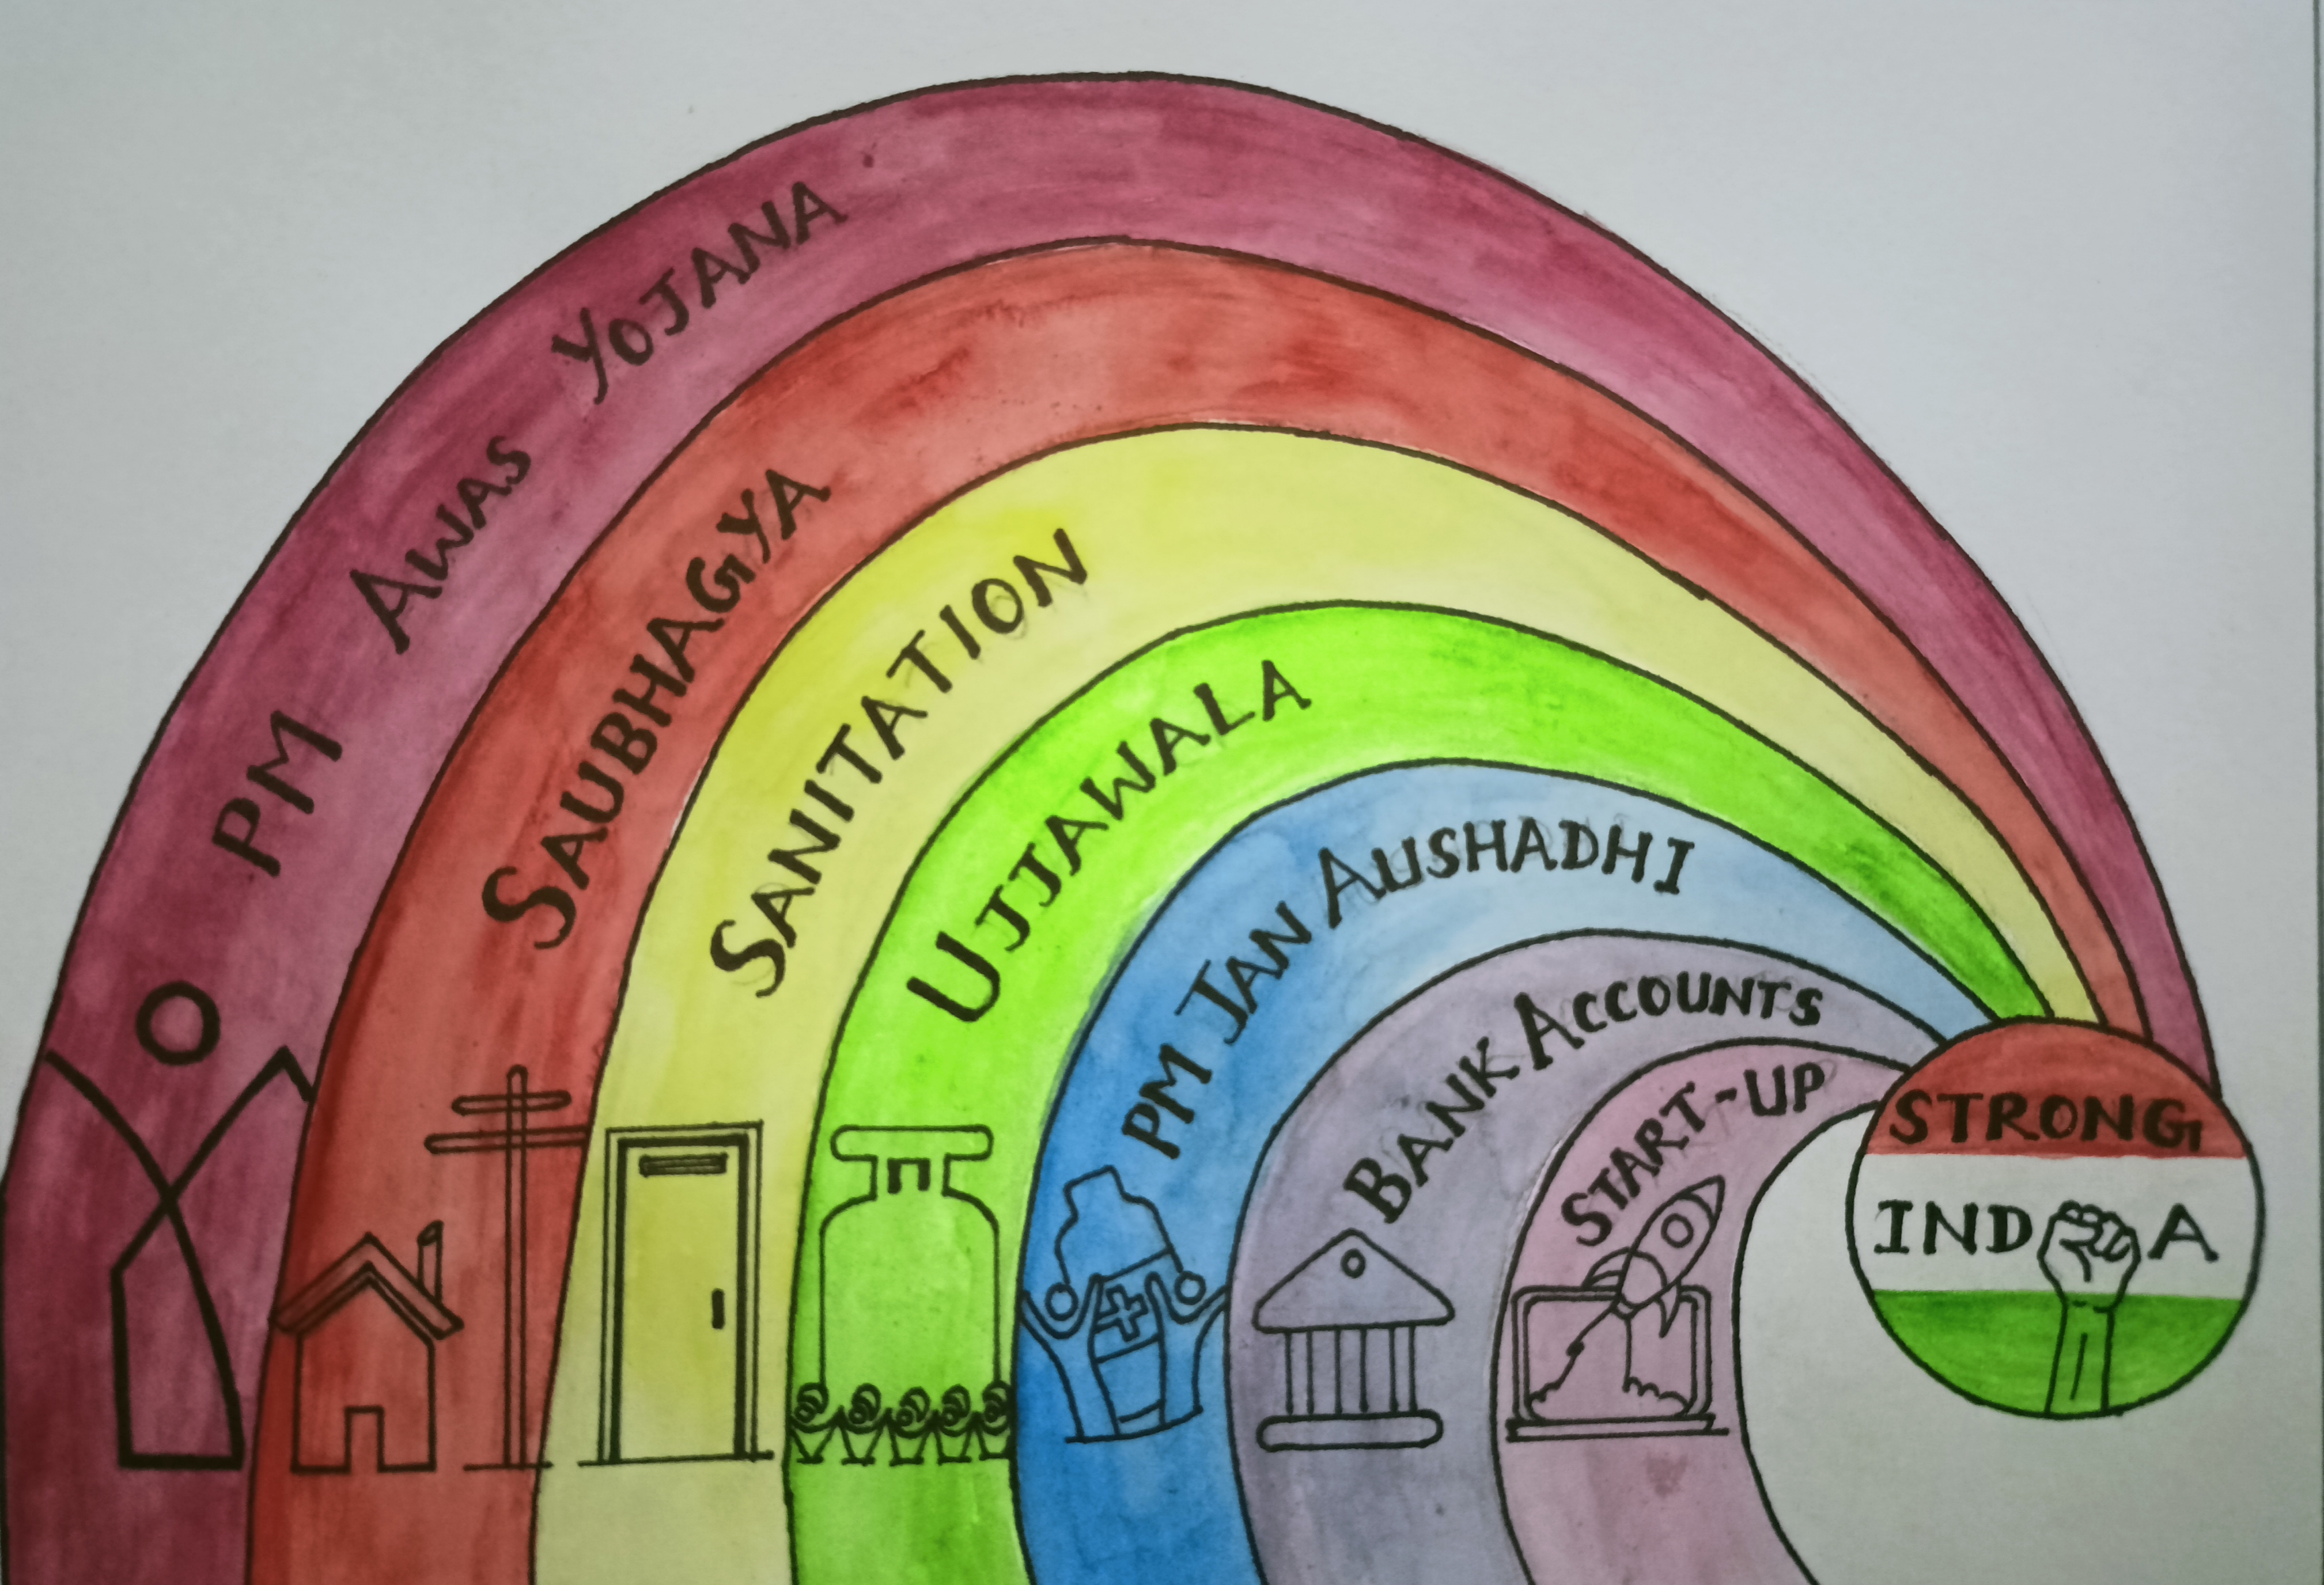 PM AWAS YOJANA
SAUBHAGYA
SANITATION
UJJAWALA
PM JAN AUSHADHI
BANK ACCOUNTS
START-UP
STRONG
INDIA